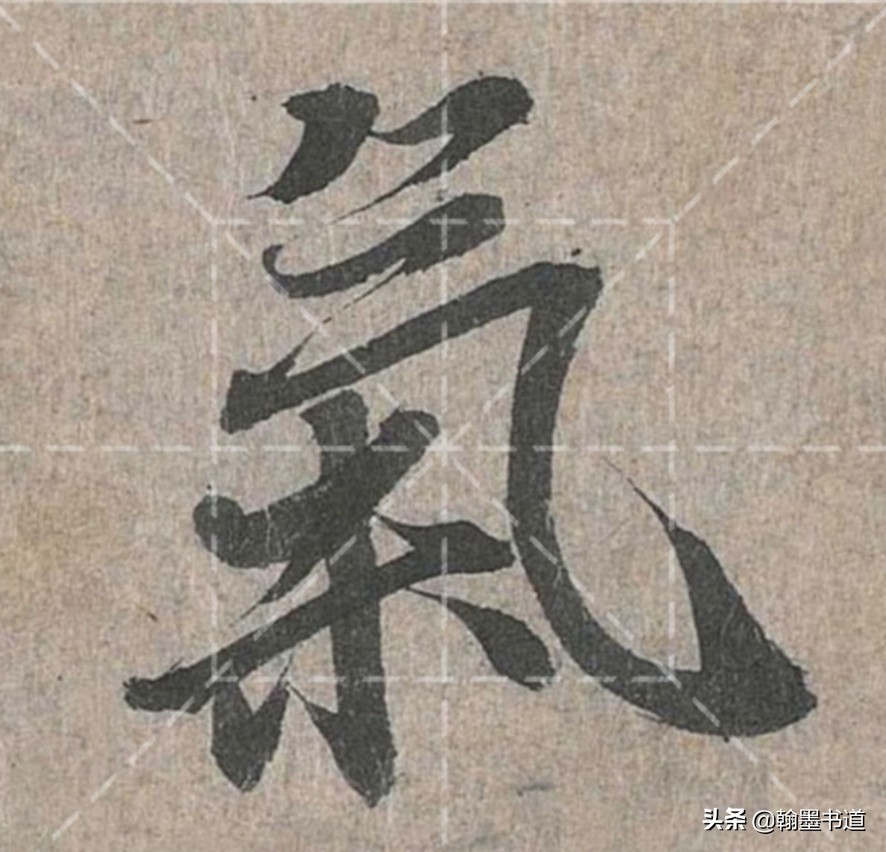 氣
头条 @翰墨书道